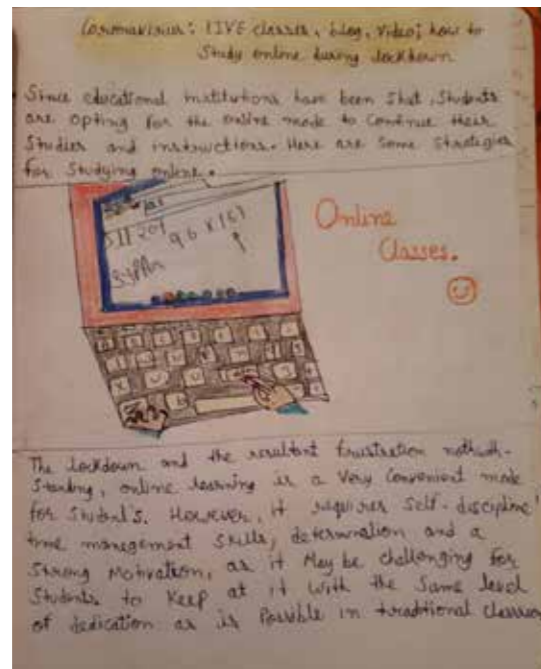 Coronavirus: LIVE classes, blog, video; how to
Study online during lockdown
Since educational institutions have been Shut, Students
are opting for the online mode to Continue their
Studies and instructions. Here are Some Strategies
for Studying online.
Online
Classes.
The lockdown and the resultant frustration notwith-
Standing, online learning is a Very Convenient mode
for Student's. However, it requires Self-discipline
time management Skills, determination and a
Strong Motivation, as it May be challenging for
Students to Keep at it With the Same level
of dedication as is Possible in traditional